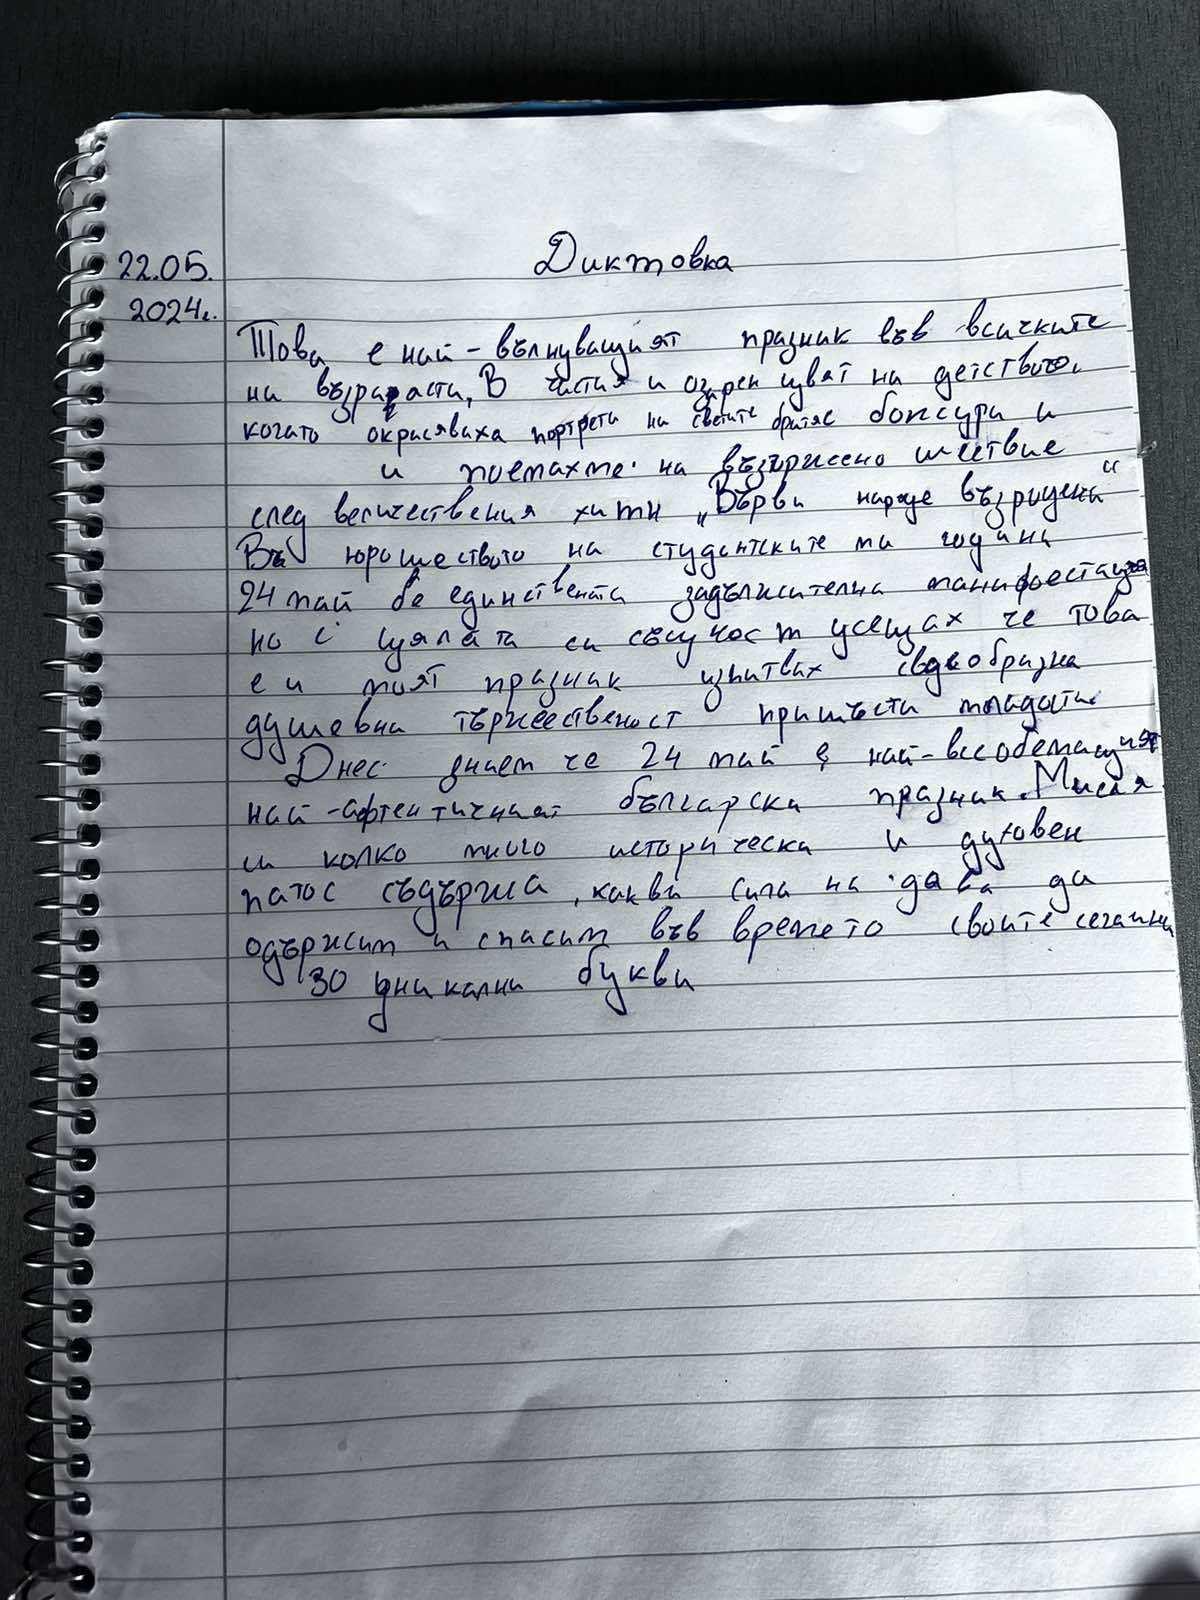 22.05.
2024г.
Диктовка
Това е най-вълнуващият празник във всичките
на възрасти, В чистия и озарен цвят на детството
когато окрасяваха портрети на светите братя божури и
и поемахме на възторжено шествие
след величествения химн „Върви народе възродени“
Във юношеството на студентските ми години
24 май бе единствената задължителна манифестация
но с цялата си същност усещах че това
е и моят празник изпитвах своеобразна
душевна тържественост примъсти младости
Днес знаем че 24 май е най-всеобемащият
най-афтентичният български празник. Мисля
си колко много историческа и духовен
патос съдържа, каква сила на дава да
одържим и спасим във времето своите сегашни
30 уникални букви